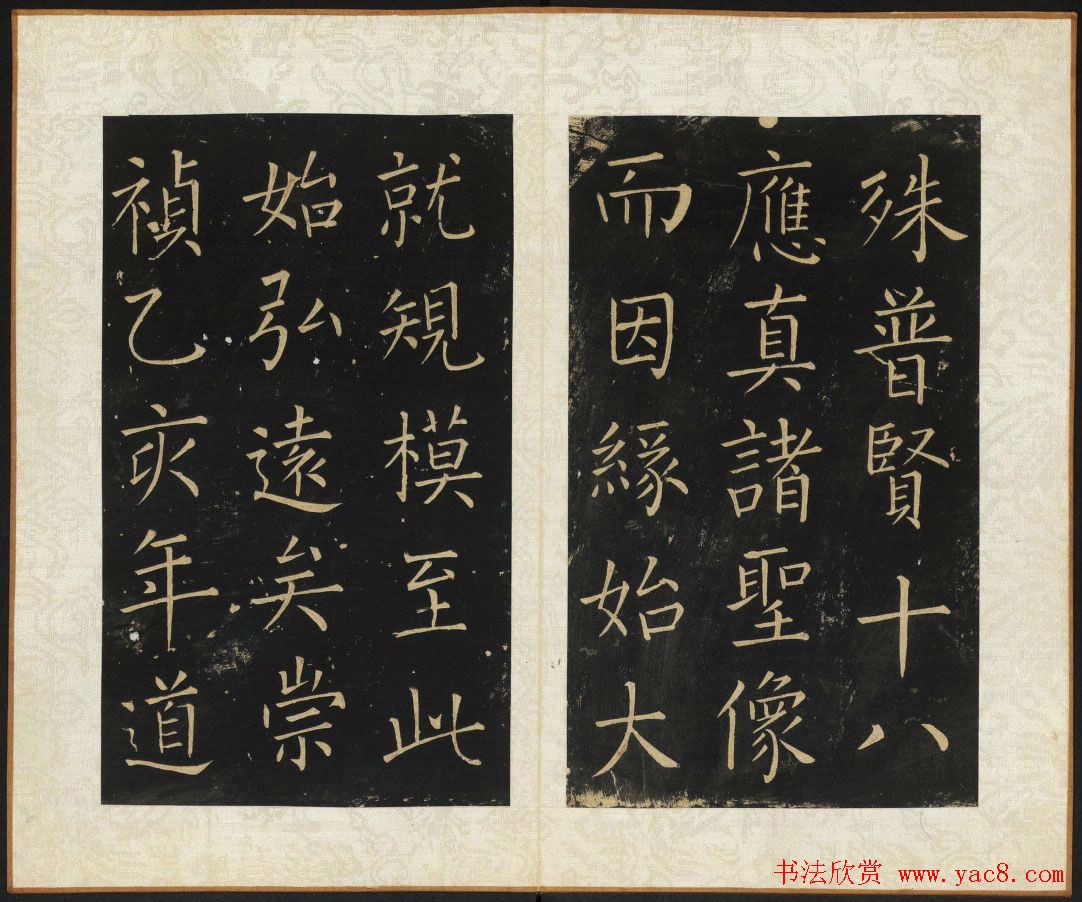 殊普賢十八
應真諸聖像
而因緣始大
就規模至此
始弘遠矣崇
禎乙亥年道
书法欣赏 www.yac8.com